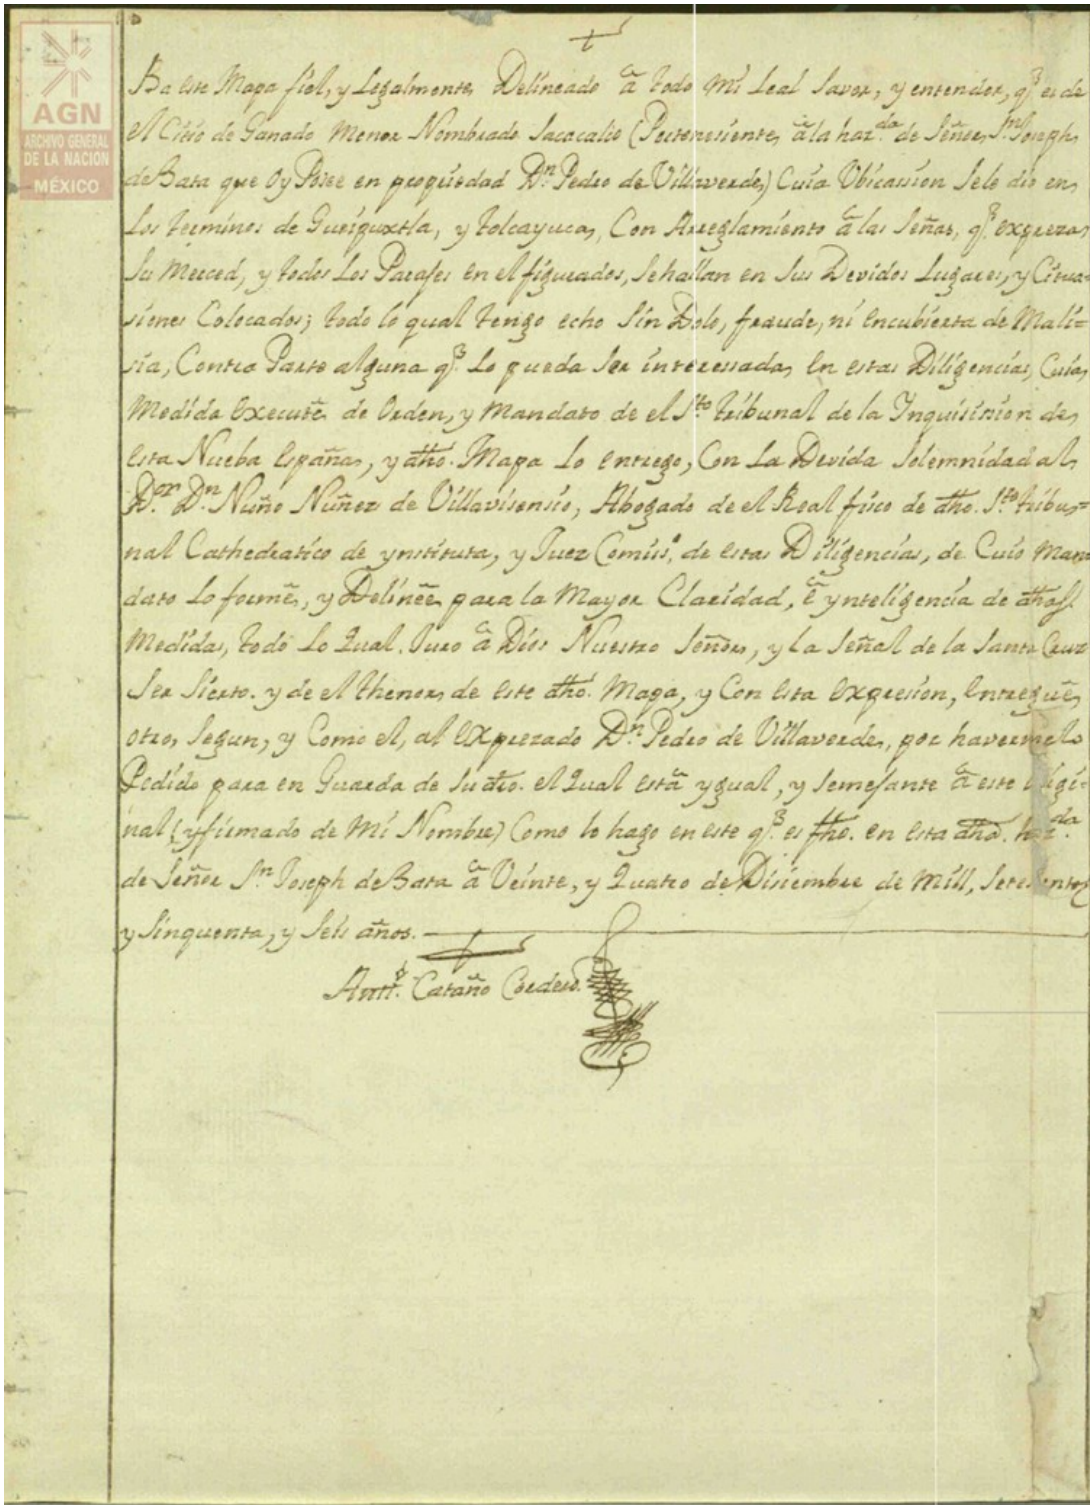 AGN
ARCHIVO GENERAL
DE LA NACIÓN
MÉXICO
Ba este Mapa fiel, y Legalmente, Delineado â todo mi Leal Saver, y entender, q.e es de
el Citio de Ganado Menor Nombrado Sacacalco (Pertenesiente, â la haz.da de Señor, S.n Joseph
de Bata que Oy Posee en propiedad D.n Pedro de Villaverde,) Cuia Ubicassion Sele dio en
Los terminos de Gueipuxtla, y tolcayuca, Con Arreglamiento â las Señas, q.e expreza
Su Merced, y todos Los Parajes en el figurados, Sehallan en Sus Devidos Lugares, y Citua-
siones Colocados; todo lo qual tengo echo Sin Dolo, fraude, ni encubierta de Mali-
sia, Contra Parte alguna q.e Lo pueda Ser interessada, en estas Diligencias, Cuia
Medida executê de Orden, y Mandato de el S.to tribunal de la Ynquisision de
esta Nueba españa, y dho. Mapa Lo entrego, Con La Devida Solemnidad al
D.or D.n Nuño Nuñez de Villavisensio, Abogado de el Real fisco de dho. S.to tribu-
nal Cathedratico de ynstituta, y Juez Comiss.o de estas Diligencias, de Cuio Man
dato Lo formê, y Delineê para la Mayor Claridad, ê ynteligencia de dhas
Medidas, todo Lo Qual. Juro â Dios Nuestro Señor, y La Señal de la Santa Cruz
Ser Sierto. y de el thenor, de este dho. Mapa, y Con esta expresion, entreguê
otro, Segun, y Como el, al exprezado D.n Pedro de Villaverde, por havermelo
Pedido para en Guarda de Su dro. el Qual estâ ygual, y Semejante â este
nal (y firmado de Mi Nombre) Como lo hago en este q.e es fho. en esta dha.
de Señor S.n Joseph de Bata â Veinte, y Quatro de Disiembre de Mill, Setesientos
y Sinquenta, y Seis años.
Antt.o Cataño Cordero.